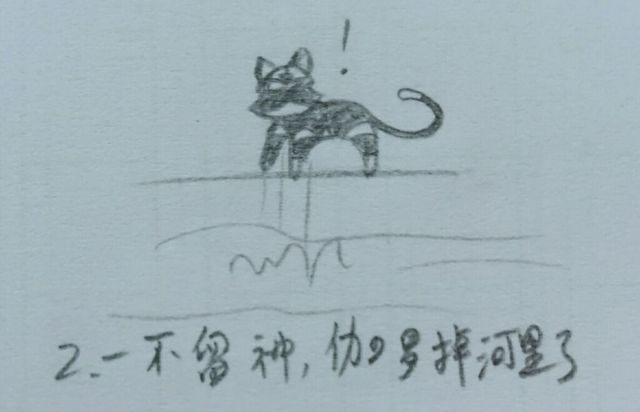 !
2.一不留神,伪9号掉河里了